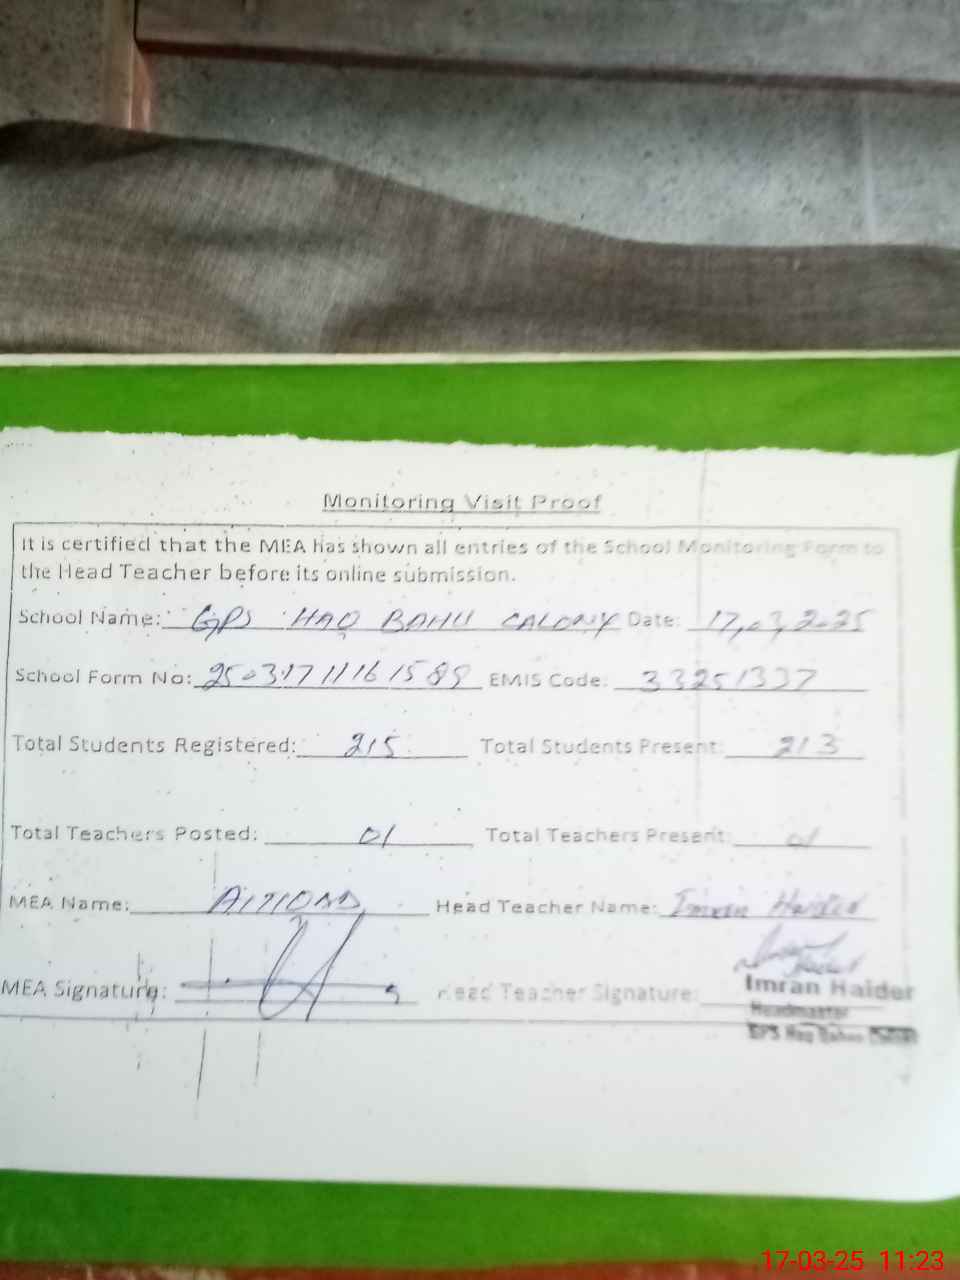 Monitoring Visit Proof
It is certified that the MEA has shown all entries of the School Monitoring Form to
the Head Teacher before its online submission.
School Name: GPS HAQ BAHU CALONY Date: 17,03,2025
School Form No: 250317111161589 EMIS Code: 33251337
Total Students Registered: 215 Total Students Present: 213
Total Teachers Posted: 01 Total Teachers Present: 01
MEA Name: Head Teacher Name: Imran Haider
MEA Signature: Head Teacher Signature:
Imran Haider
Headmaster
GPS Haq Bahoo
17-03-25 11:23